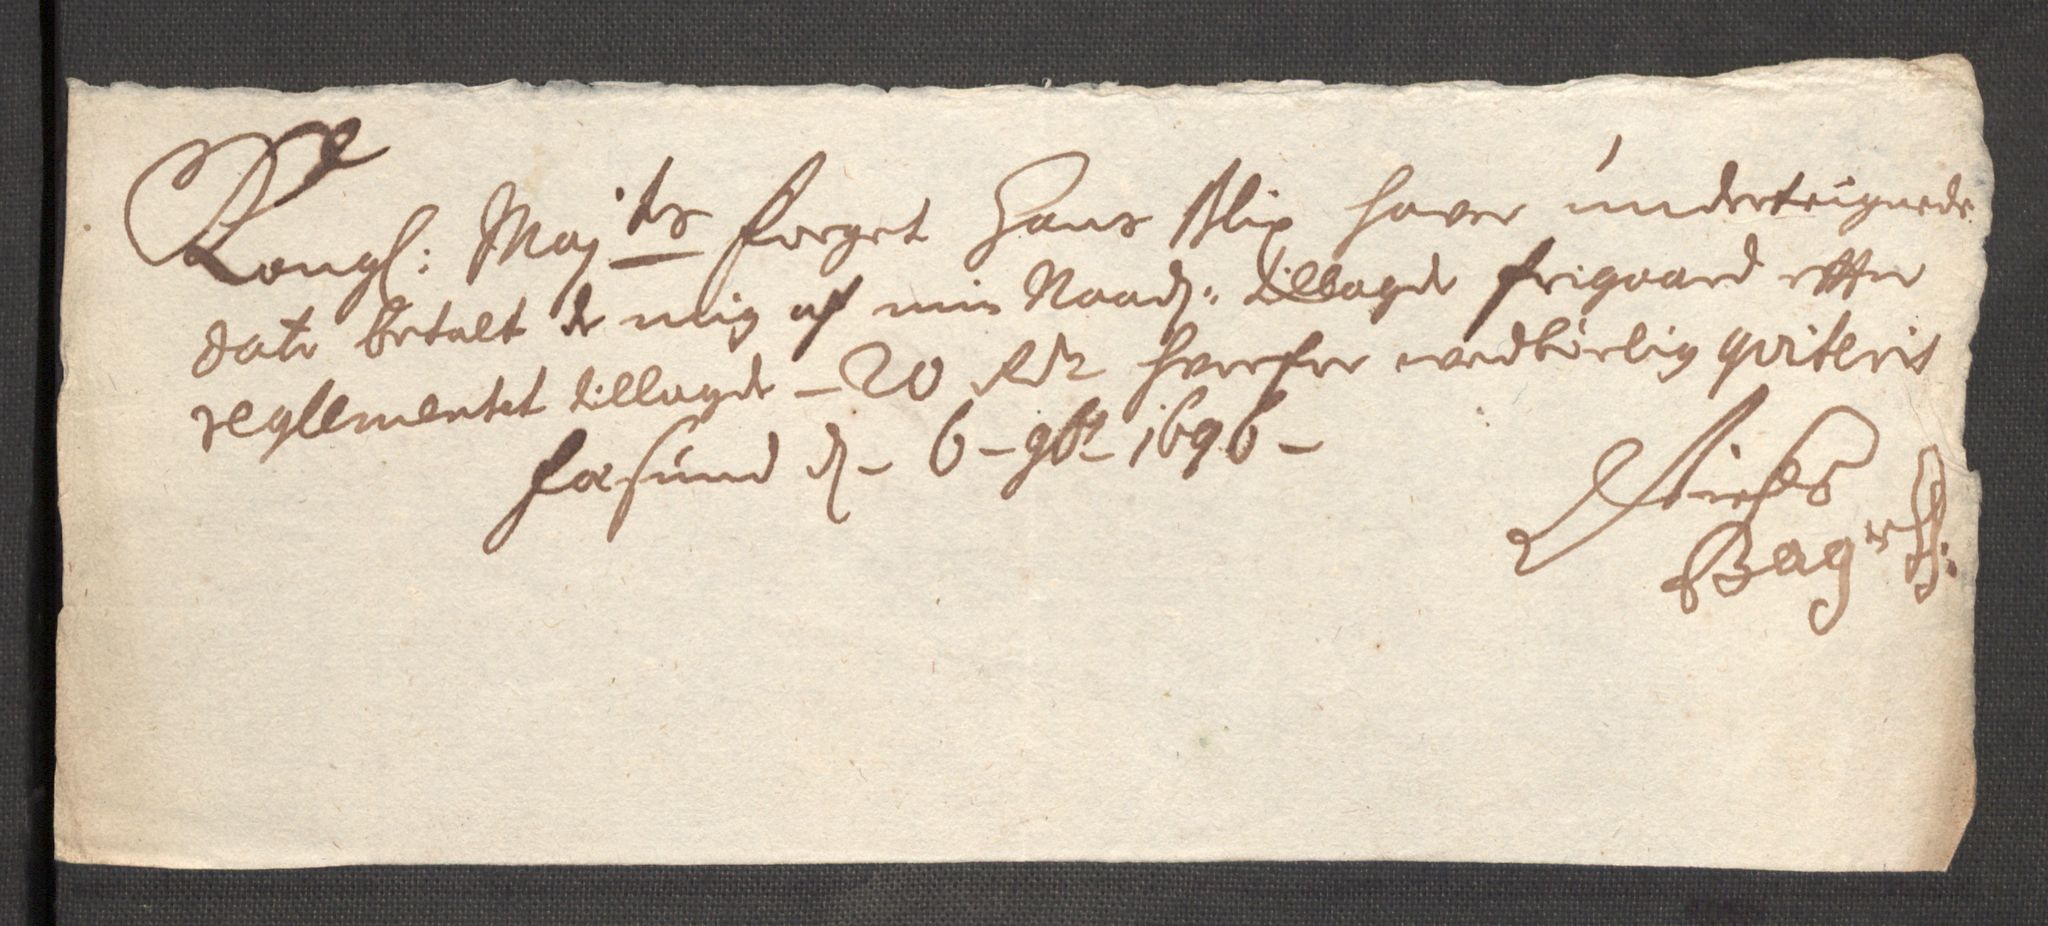 Kongl: Maj:ts foeget Hans Blix haver underteignede
dato betalt de mig af min Naad: tillagde frigaard effter
reglementet tillagde – 20 Rdr hvorfor wedbørlig qviteris
Forsund d – 6 – 9br – 1696 –